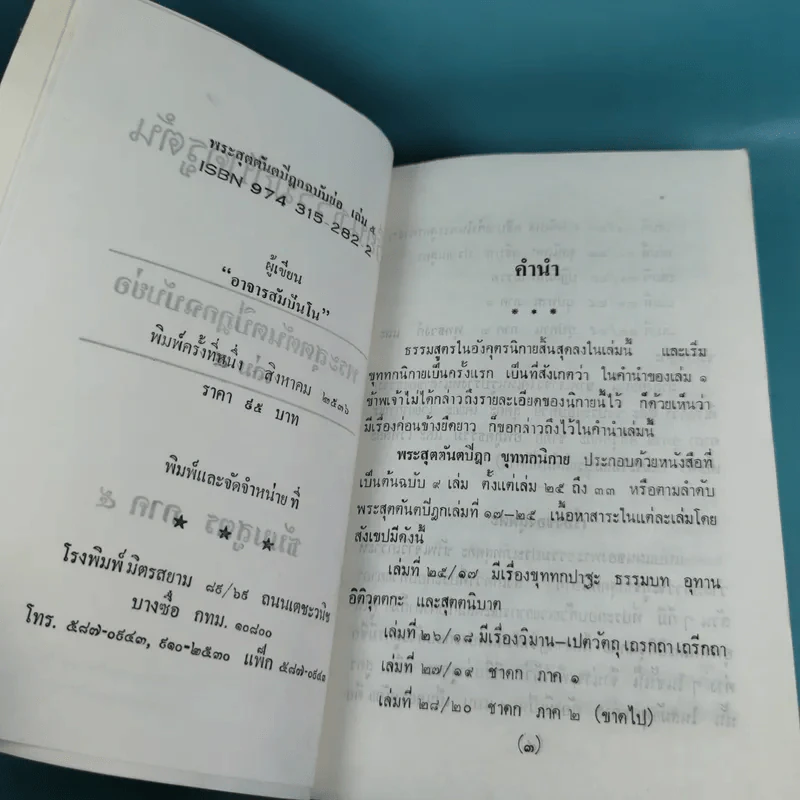 พระสุตตันตปิฎกฉบับย่อ เล่ม ๕
ISBN 974 315 282 2
ผู้เขียน
"อาจารสัมปันโน"
พิมพ์ครั้งที่หนึ่ง สิงหาคม ๒๕๓๖
ราคา ๙๕ บาท
พิมพ์และจัดจำหน่าย ที่
★ ★ ★
โรงพิมพ์ มิตรสยาม ๘๙/๖๙ ถนนเตชะวนิช
บางซื่อ กทม. ๑๐๘๐๐
โทร. ๕๘๗-๐๙๔๓, ๙๑๐-๒๕๓๐ แฟ็ก ๕๘๗-๐๙๔๑
คำนำ
* * *
ธรรมสูตรในอังคุตรนิกายสิ้นสุดลงในเล่มนี้ และเริ่ม
ขุททกนิกายเป็นครั้งแรก เป็นที่สังเกตว่า ในคำนำของเล่ม ๑
ข้าพเจ้าไม่ได้กล่าวถึงรายละเอียดของนิกายนี้ไว้ ก็ด้วยเห็นว่า
มีเรื่องค่อนข้างยืดยาว ก็ขอกล่าวถึงไว้ในคำนำเล่มนี้
พระสุตตันตปิฎก ขุททกนิกาย ประกอบด้วยหนังสือที่
เป็นต้นฉบับ ๙ เล่ม ตั้งแต่เล่ม ๒๕ ถึง ๓๓ หรือตามลำดับ
พระสุตตันตปิฎกเล่มที่ ๑๗-๒๕ เนื้อหาสาระในแต่ละเล่มโดย
สังเขปมีดังนี้
เล่มที่ ๒๕/๑๗ มีเรื่องขุททกปาฐะ ธรรมบท อุทาน
อิติวุตตกะ และสุตตนิบาต
เล่มที่ ๒๖/๑๘ มีเรื่องวิมาน-เปตวัตถุ เถรกถา เถรีกถา
เล่มที่ ๒๗/๑๙ ชาดก ภาค ๑
เล่มที่ ๒๘/๒๐ ชาดก ภาค ๒ (ขาดไป)
(๓)